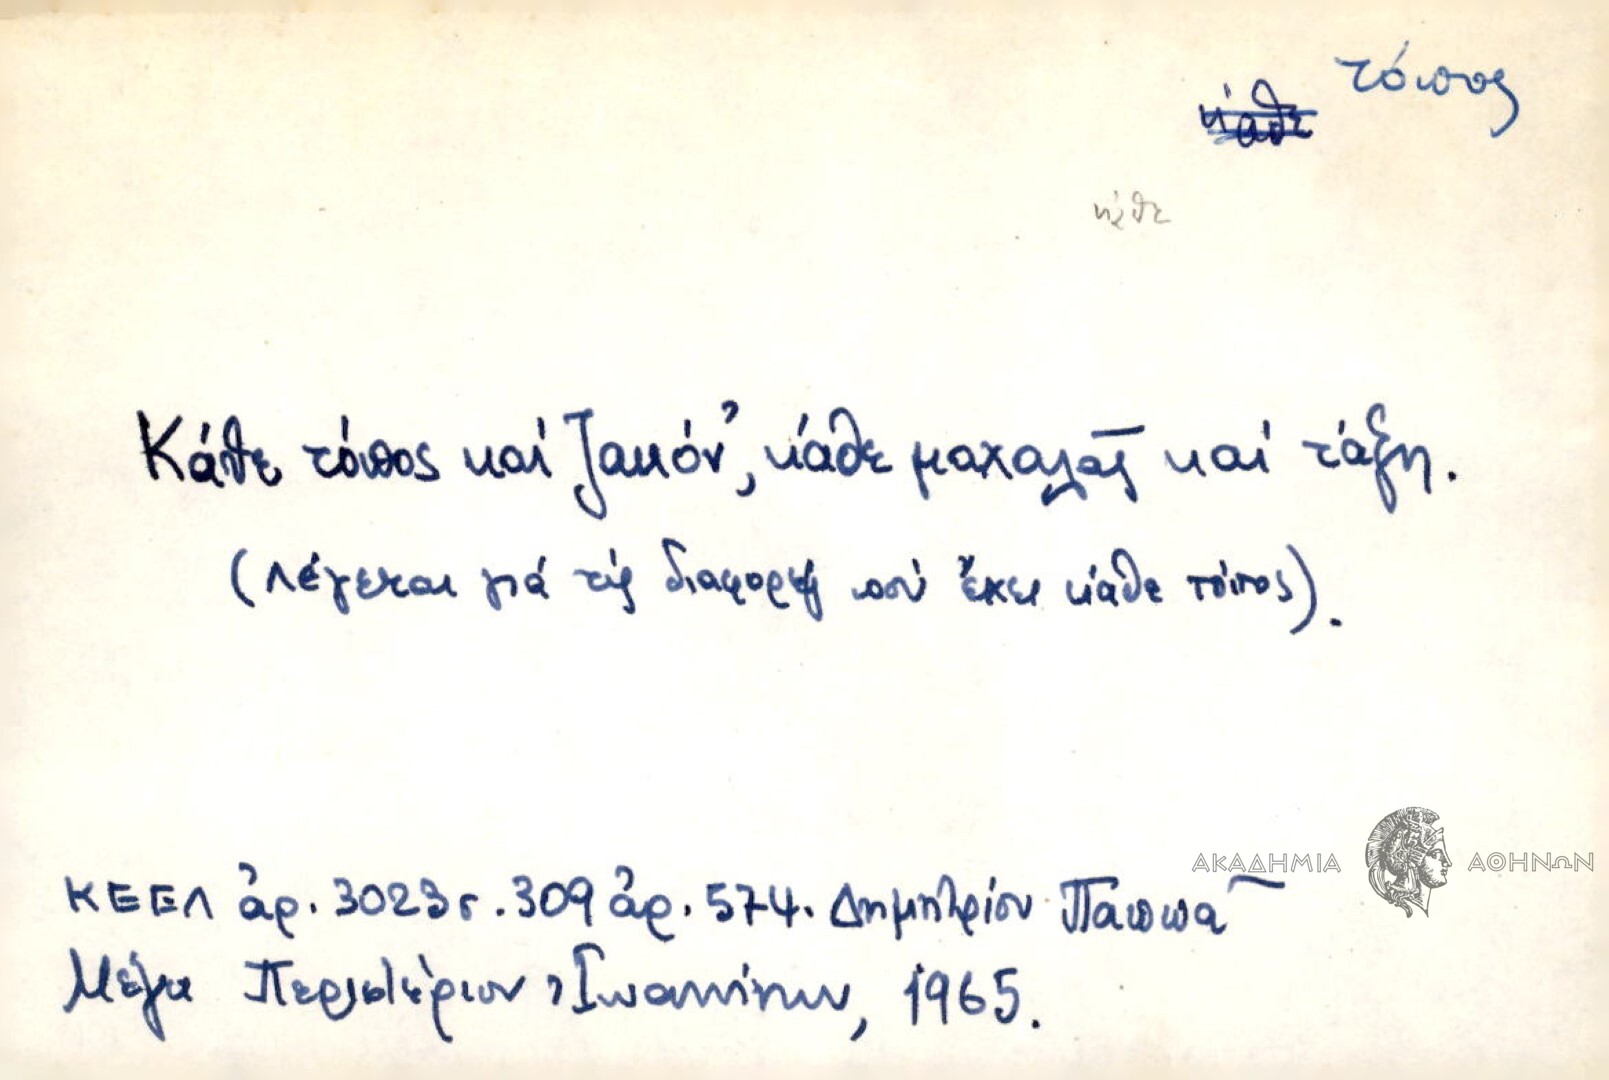 τόπος
κάθε
κάθε
Κάθε τόπος καί ζακόν', κάθε μαχαλᾶς καί τάξη.
(Λέγεται γιά τίς διαφορές πού ἔχει κάθε τόπος).
ΑΚΑΔΗΜΙΑ ΑΘΗΝΩΝ
ΚΕΕΛ ἀρ. 3023 σ. 309 ἀρ. 574. Δημητρίου Παππᾶ
Μέγα Περιστέριον Ἰωαννίνων, 1965.